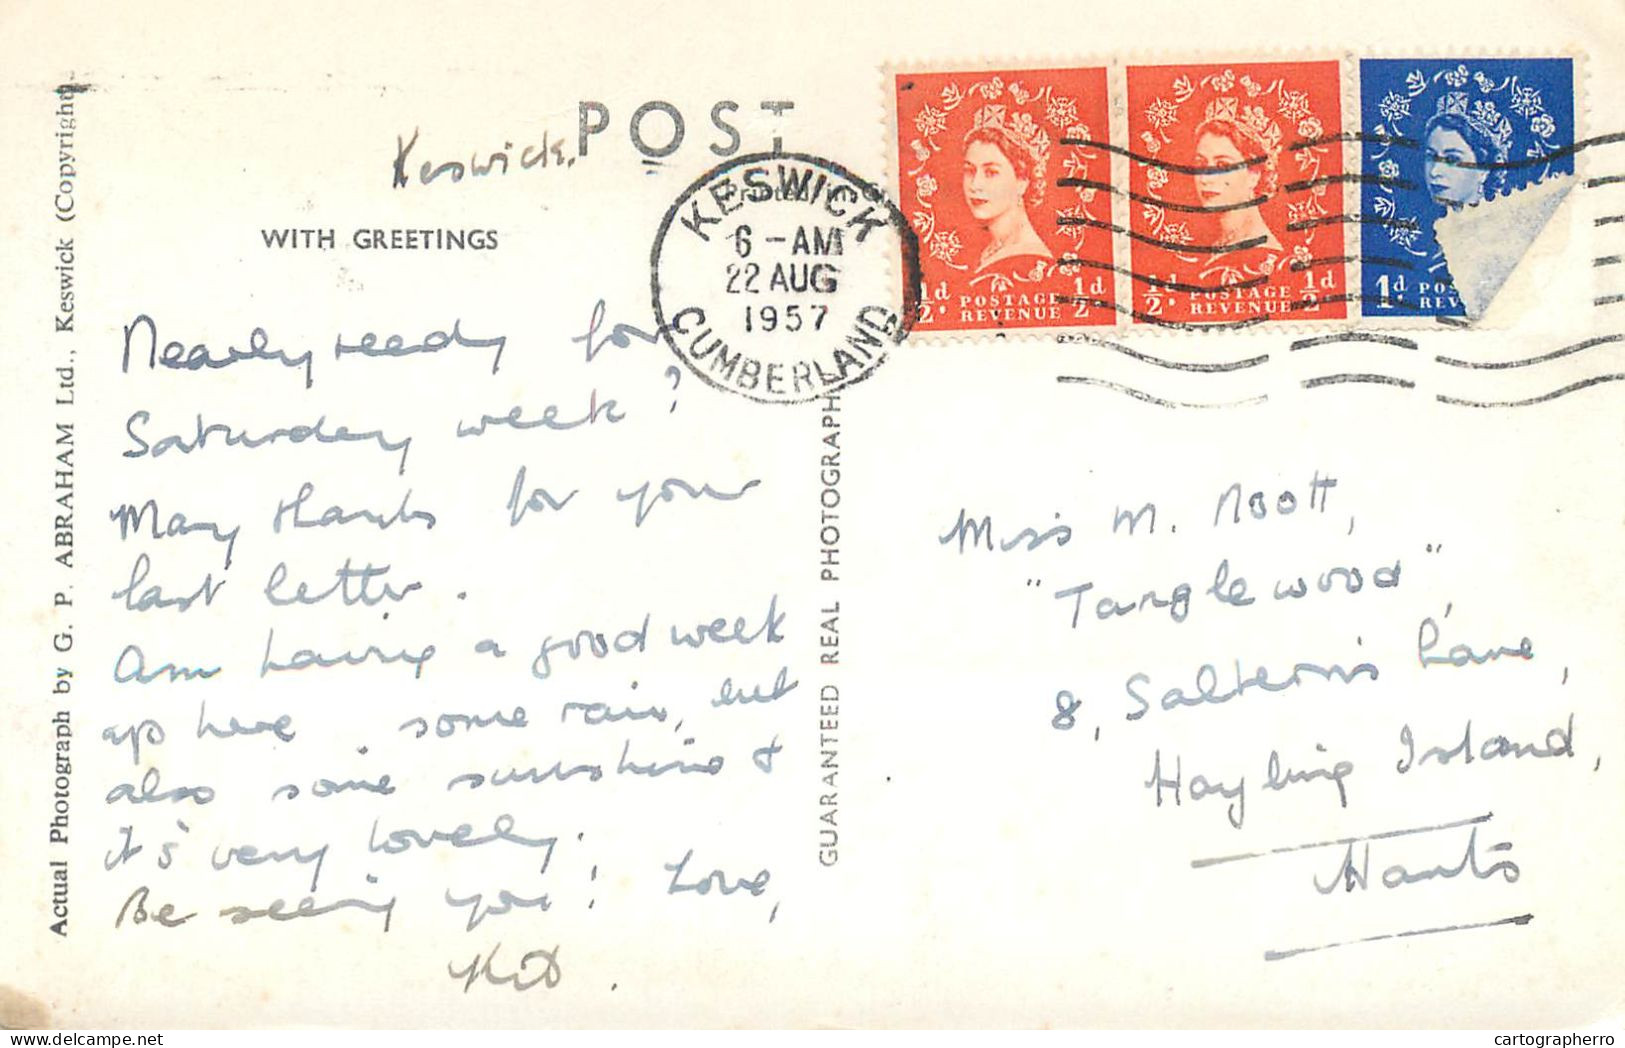 Actual Photograph by G. P. ABRAHAM Ltd., Keswick (Copyright)
POST
Keswick.
WITH GREETINGS
KESWICK
6 - AM
22 AUG
1957
CUMBERLAND
½d POSTAGE REVENUE ½d
½d POSTAGE REVENUE ½d
1d PO
REV
GUARANTEED REAL PHOTOGRAPH
Nearly ready for
Saturday week?
Many thanks for your
last letter.
Am having a good week
up here some rain, but
also some sunshine &
it's very lovely.
Be seeing you! Love,
Kit.
Miss M. Nott,
"Tanglewood",
8, Saltern's Lane,
Hayling Island,
Hants
cartographerro